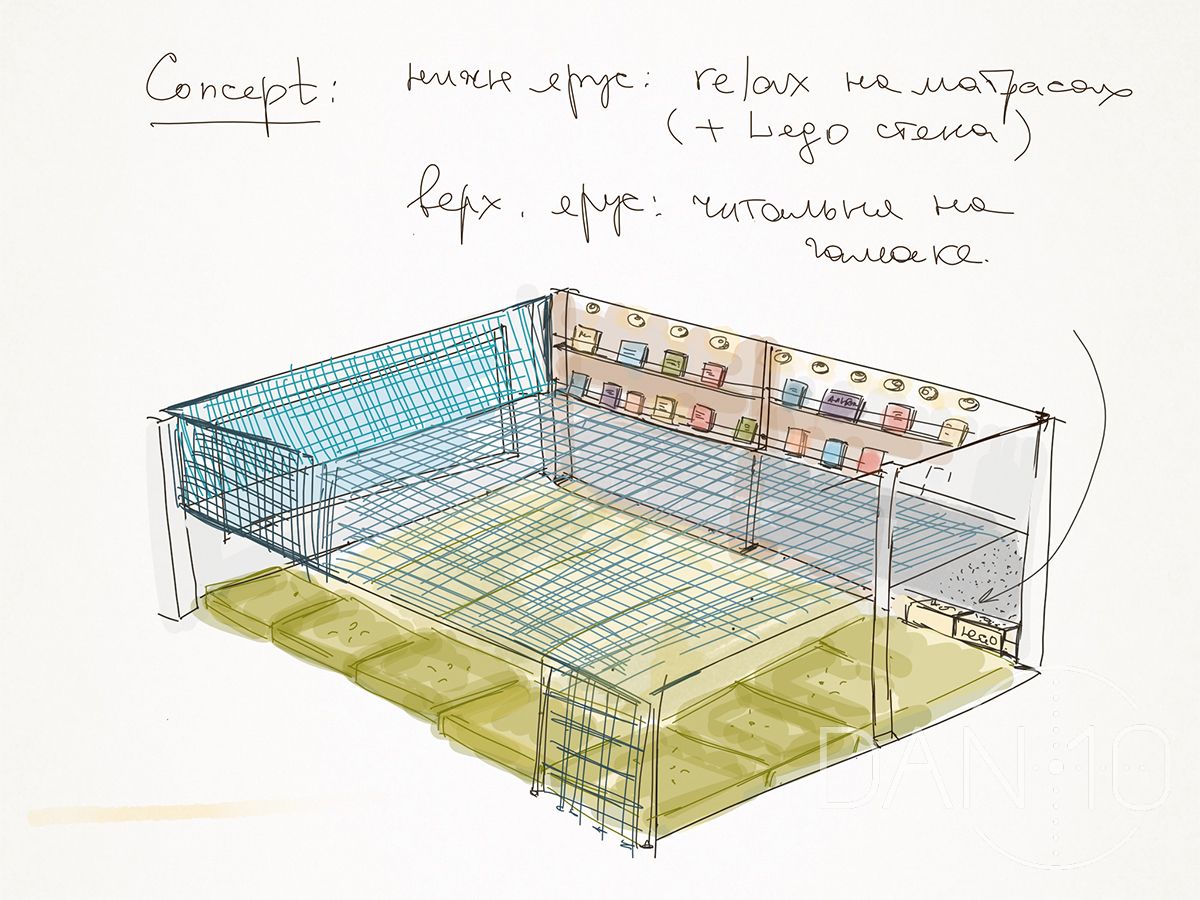 Concept: нижн ярус: relax на матрасах
(+ Lego стена)
верх. ярус: читальня на
гамаке.
LEGO
DAN 10